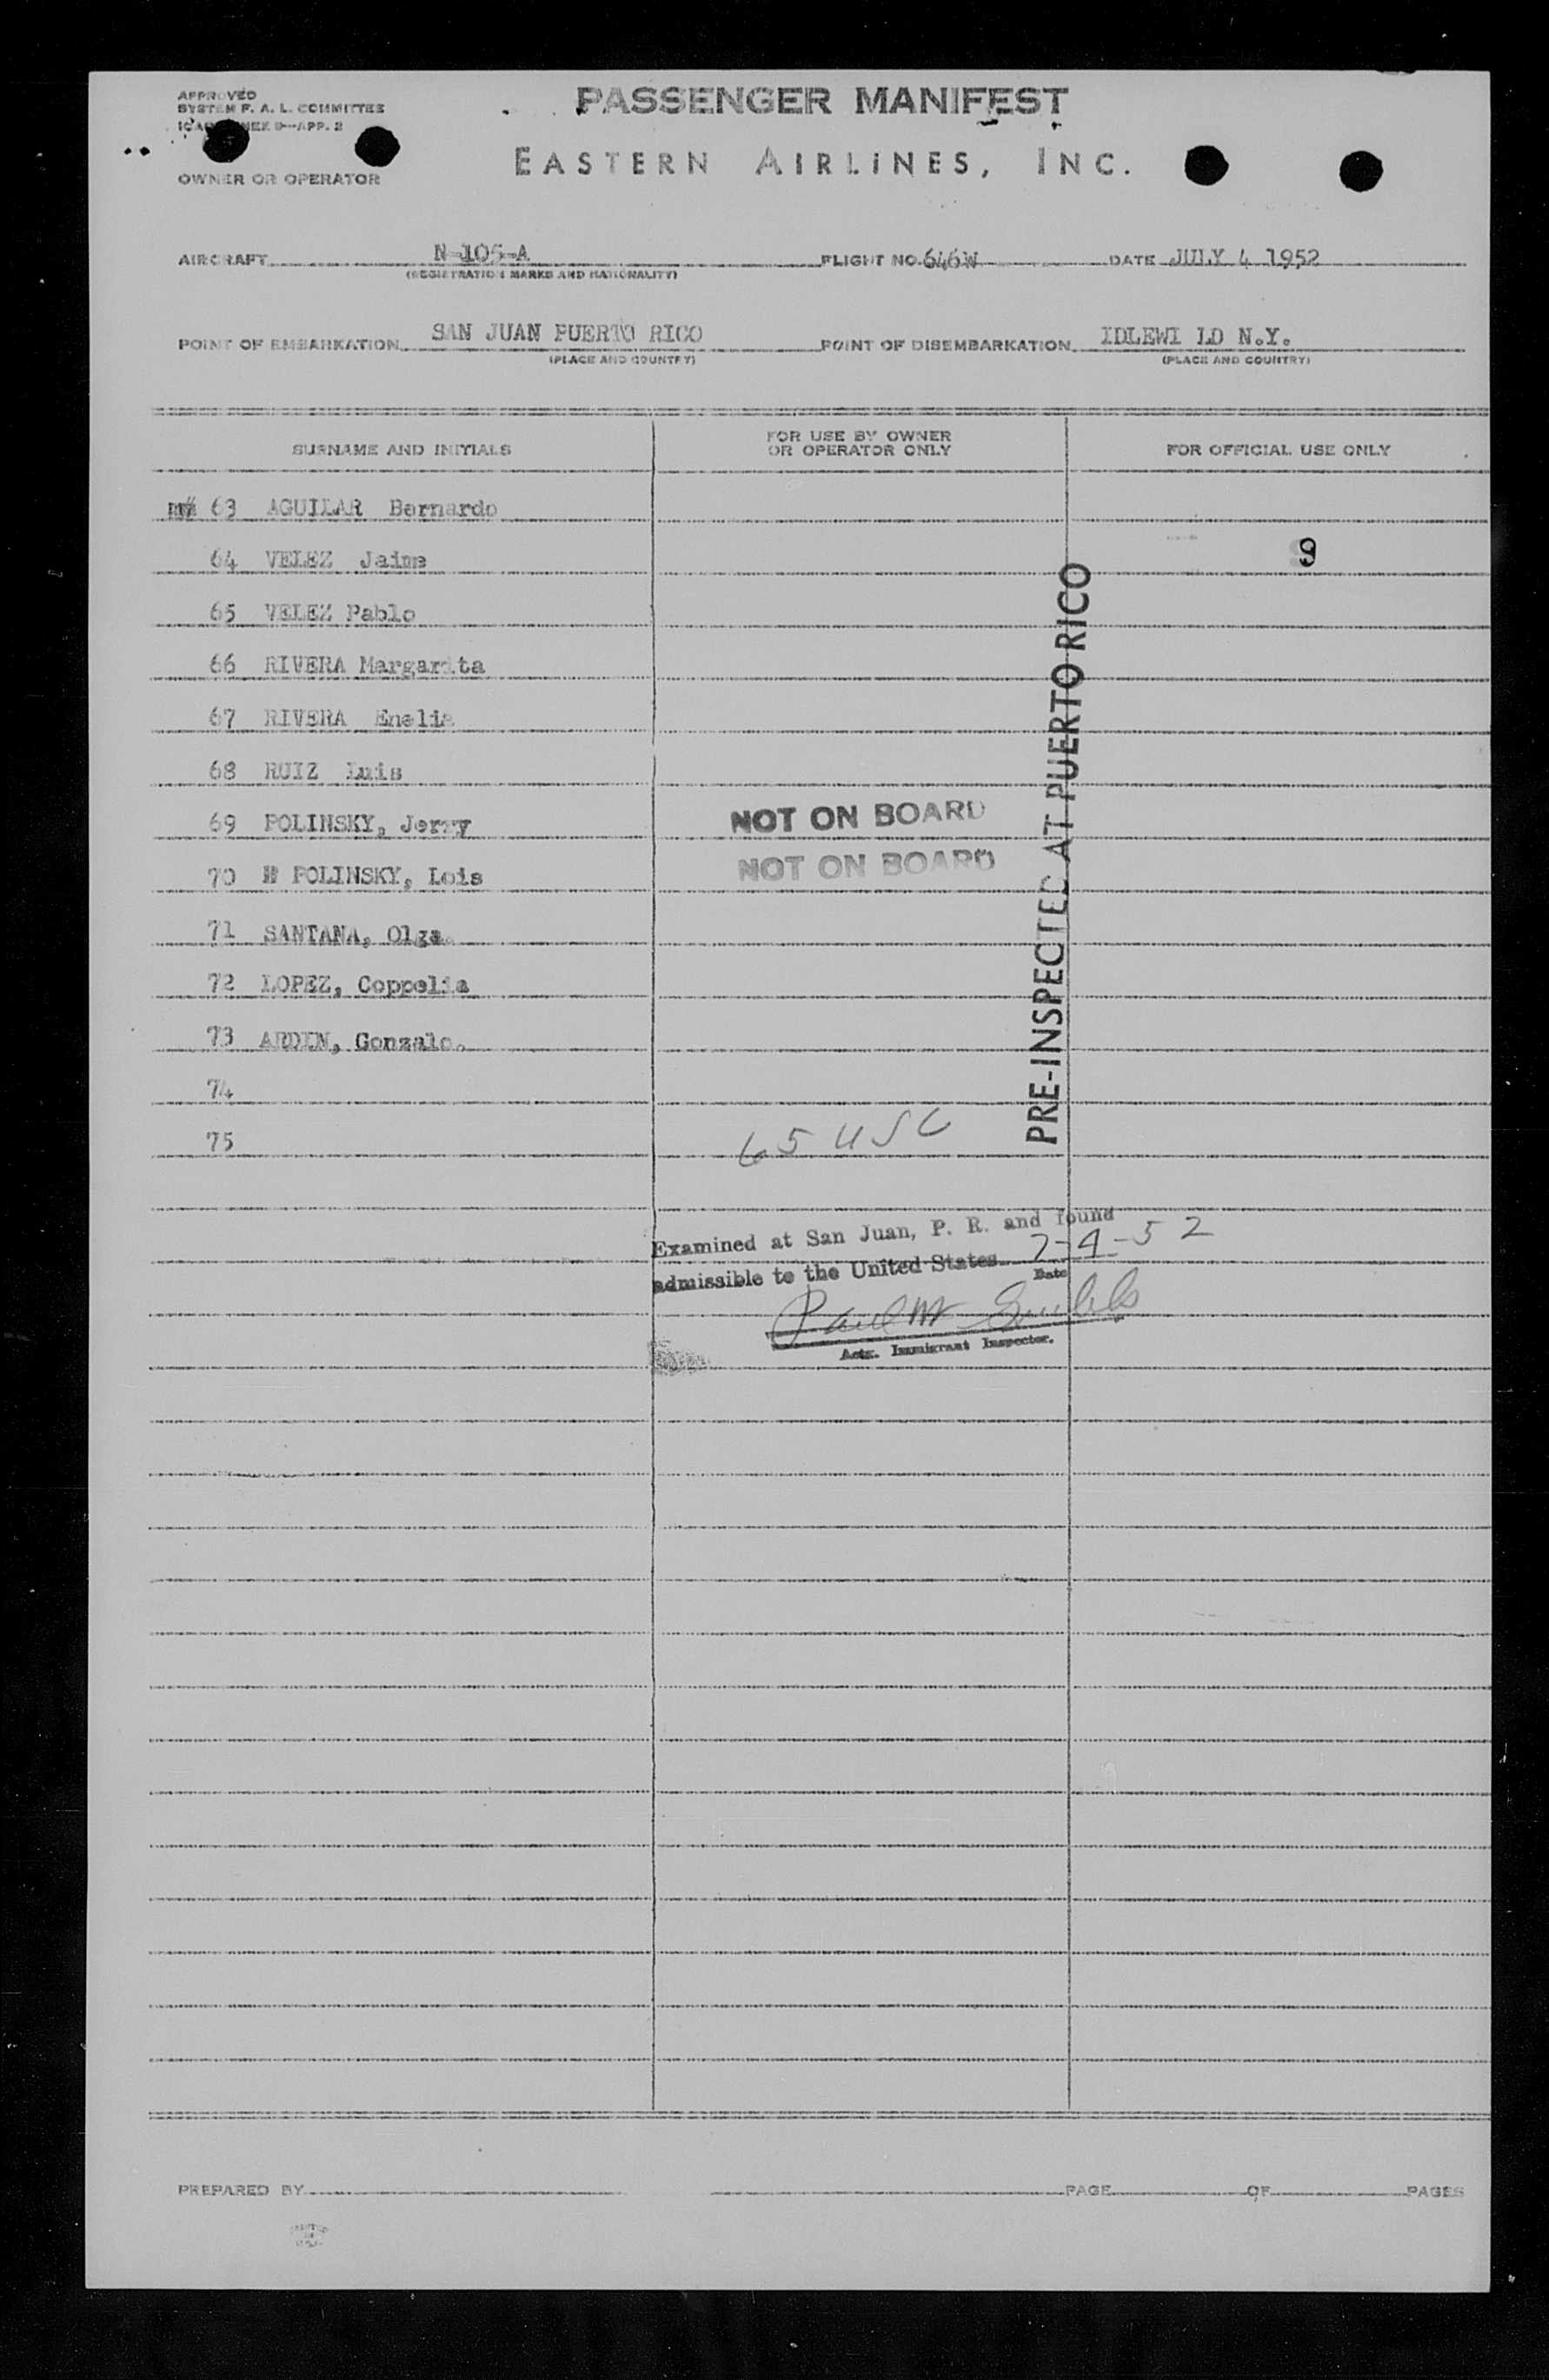 APPROVED
SYSTEM F. A. L. COMMITTEE
9—APP. 2
PASSENGER MANIFEST
EASTERN AIRLINES, INC.
OWNER OR OPERATOR
AIRCRAFT N-105-A FLIGHT NO. 646W DATE JULY 4 1952
(REGISTRATION MARKS AND NATIONALITY)
POINT OF EMBARKATION SAN JUAN PUERTO RICO POINT OF DISEMBARKATION IDLEWI LD N.Y.
(PLACE AND COUNTRY) (PLACE AND COUNTRY)
SURNAME AND INITIALS FOR USE BY OWNER OR OPERATOR ONLY FOR OFFICIAL USE ONLY
63 AGUILAR Bernardo
64 VELEZ Jaime 9
65 VELEZ Pablo
66 RIVERA Margarita
67 RIVERA Enelia
68 RUIZ Luis
69 POLINSKY, Jerry NOT ON BOARD
70 POLINSKY, Lois NOT ON BOARD
71 SANTANA, Olga
72 LOPEZ, Coppelia
73 ARDIN, Gonzalo.
74
75 65 USC
PRE-INSPECTED AT PUERTO RICO
Examined at San Juan, P. R. and found
admissible to the United States 7-4-52
Date
Paul
Actg. Immigrant Inspector.
PREPARED BY PAGE OF PAGES